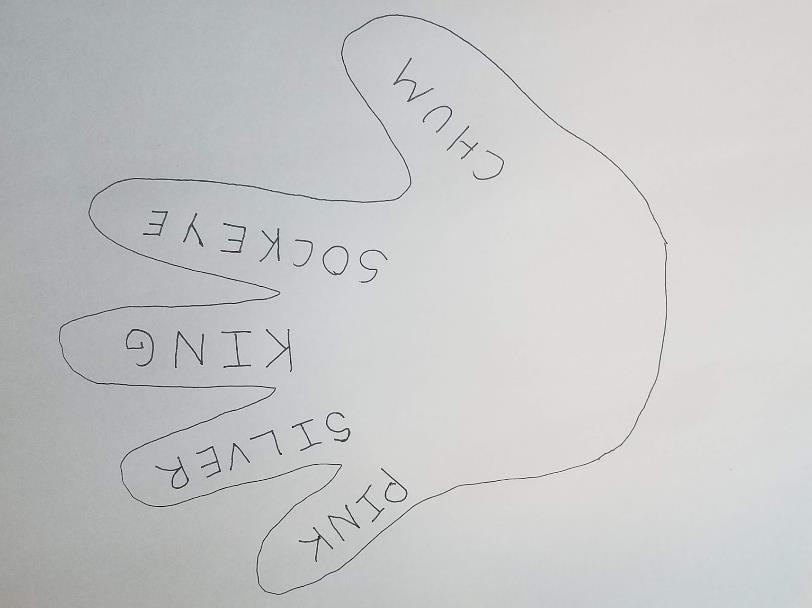 CHUM
SOCKEYE
KING
SILVER
PINK